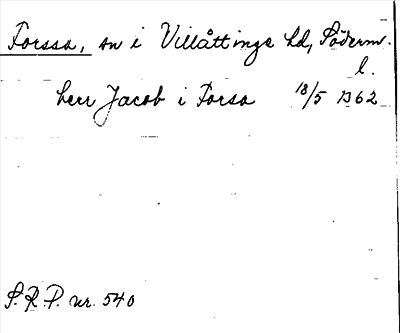 Forssa, sn i Villåttinge hd, Söderm.
l.
herr Jacob i Forsa 18/5 1362
S.R.P. nr. 540